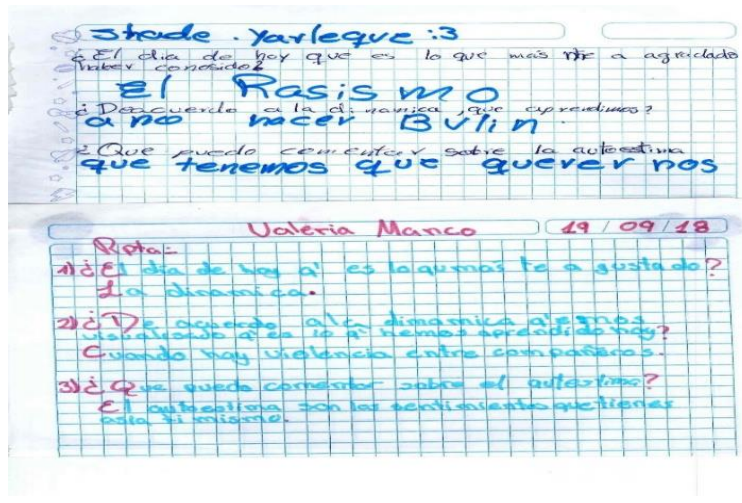 Shande . Yarleque :3
¿El dia de hoy que es lo que mas me a agradado
haber conosido?
El Rasismo
¿Deacuerdo a la dinamica, que aprendimos?
a no hacer Bulin.
¿Que puedo comentar sobre la autoestima
que tenemos que querer nos
Valeria Manco 19/09/18
Rpta=
1) ¿El dia de hoy q' es lo qu mas te a gustado?
La dinamica.
2) ¿De acuerdo ala dinamica q' emos
visualisado q' es lo q' hemos aprendido hoy?
Cuando hay violencia entre compañeros.
3) ¿Que puedo comentar sobre el autestima?
El autoestima son los sentimientos que tienes
asia ti mismo.